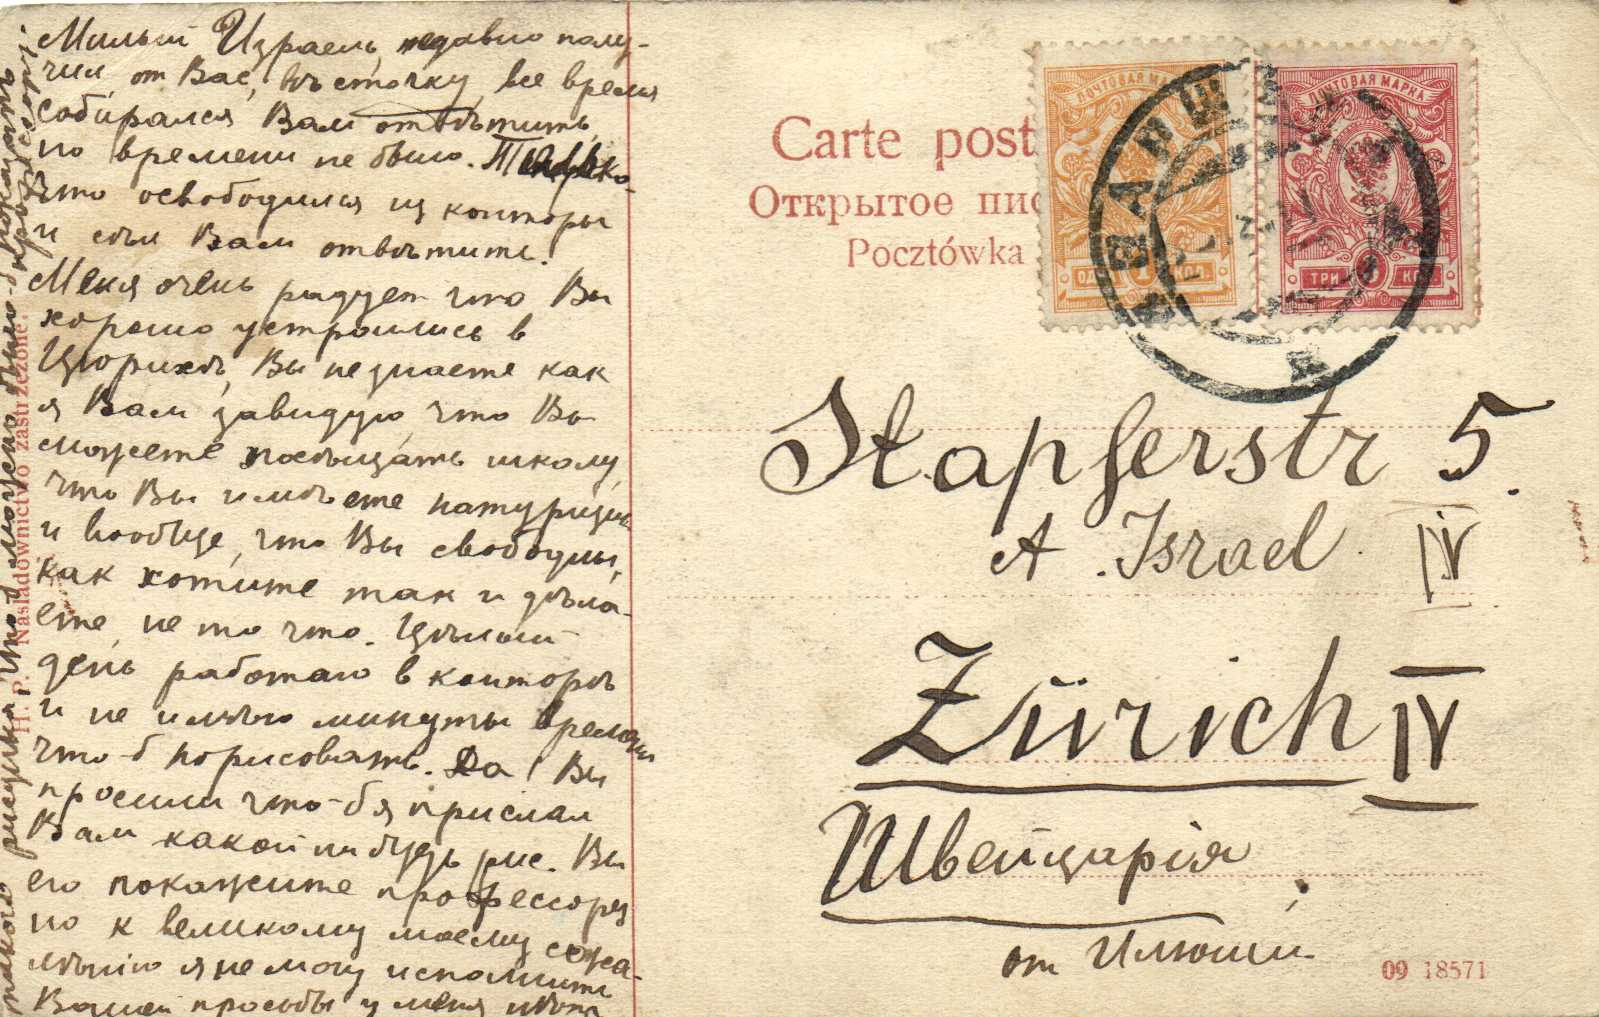 Милый Израель, недавно полу-
чил от Вас, весточку, все время
собирался Вам отвѣтить,
но времени не было. Только-
что освободился из конторы
и сѣл Вам отвѣтить.
Меня очень радует что Вы
хорошо устроились в
Цюрихѣ, Вы не знаете как
я Вам завидую, что Вы
можете посѣщать школу,
что Вы имѣете натурщиц
и вообще, что Вы свободны,
как хотите так и дѣла-
ете, не то что. Цѣлый
день работаю в конторѣ
и не имѣю минуты времени
что-б порисовать. Да! Вы
просили что-б я прислал
Вам какой нибудь рис. Вы
его покажите профессору,
но к великому моему сожа-
лѣнію я не могу исполнить
Вашей просьбы у меня нѣт
такого рисунка что-б можно было-б показать
профессору.
H. P. Naśladownictwo zastrzeżone.
Carte post
Открытое пис
Pocztówka
ПОЧТОВАЯ МАРКА
ОД 1 КОП.
ПОЧТОВАЯ МАРКА
ТРИ 3 КОП.
ВАРШ
Stapferstr 5.
A. Israel IV
Zürich IV
Швейцарія
от Илюши.
09 18571